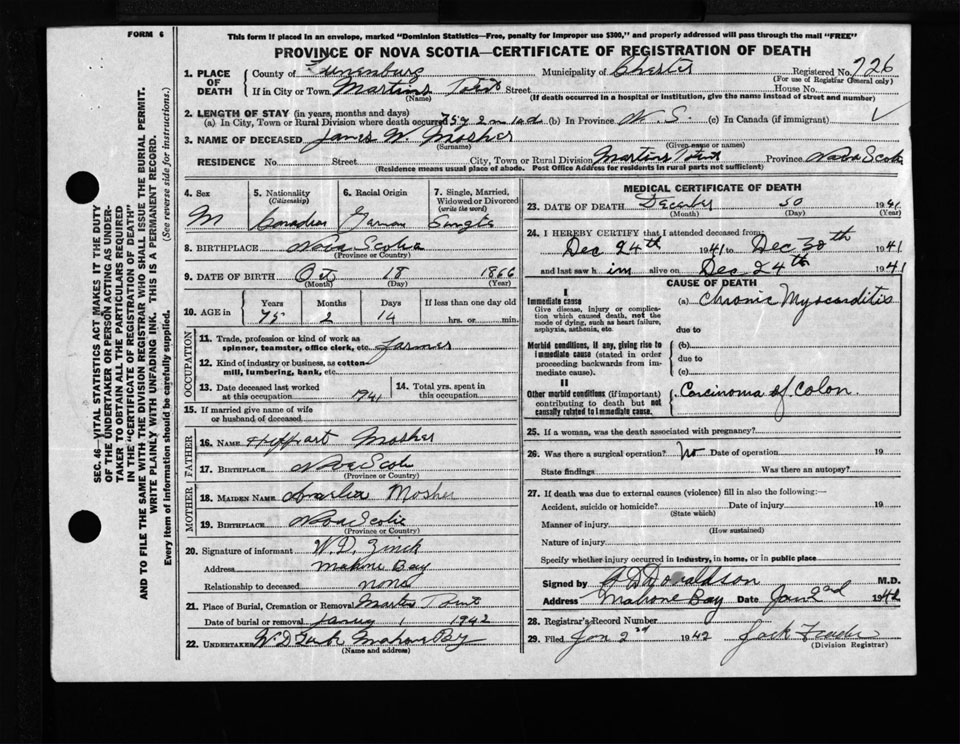 FORM 6
This form if placed in an envelope, marked "Dominion Statistics—Free, penalty for improper use $300," and properly addressed will pass through the mail "FREE"
PROVINCE OF NOVA SCOTIA—CERTIFICATE OF REGISTRATION OF DEATH
SEC. 46—VITAL STATISTICS ACT MAKES IT THE DUTY
OF THE UNDERTAKER OR PERSON ACTING AS UNDER-
TAKER TO OBTAIN ALL THE PARTICULARS REQUIRED
IN THE "CERTIFICATE OF REGISTRATION OF DEATH"
AND TO FILE THE SAME WITH THE DIVISION REGISTRAR WHO SHALL ISSUE THE BURIAL PERMIT.
WRITE PLAINLY WITH UNFADING INK. THIS IS A PERMANENT RECORD.
Every item of information should be carefully supplied. (See reverse side for instructions.)
1. PLACE OF DEATH
County of Lunenburg Municipality of Chester Registered No. 726
(For use of Registrar General only)
If in City or Town Martins Point Street House No.
(Name) (If death occurred in a hospital or institution, give the name instead of street and number)
2. LENGTH OF STAY (in years, months and days)
(a) In City, Town or Rural Division where death occurred 75y 2m (b) In Province N.S. (c) In Canada (if immigrant)
3. NAME OF DECEASED James W. Mosher
(Surname) (Given name or names)
RESIDENCE No. Street City, Town or Rural Division Martins Point Province Nova Scotia
(Residence means usual place of abode. Post Office Address for residents in rural parts not sufficient)
4. Sex
M
5. Nationality
(Citizenship)
Canadian
6. Racial Origin
German
7. Single, Married,
Widowed or Divorced
(write the word)
Single
8. BIRTHPLACE Nova Scotia
(Province or Country)
9. DATE OF BIRTH Oct 18 1866
(Month) (Day) (Year)
10. AGE in
Years Months Days If less than one day old
75 2 14 hrs. or min.
OCCUPATION
11. Trade, profession or kind of work as
spinner, teamster, office clerk, etc. farmer
12. Kind of industry or business, as cotton-
mill, lumbering, bank, etc.
13. Date deceased last worked
at this occupation 1941
14. Total yrs. spent in
this occupation
15. If married give name of wife
or husband of deceased
FATHER
16. NAME Mosher
17. BIRTHPLACE Nova Scotia
(Province or Country)
MOTHER
18. MAIDEN NAME Mosher
19. BIRTHPLACE Nova Scotia
(Province or Country)
20. Signature of informant W. D. Zinck
Address Mahone Bay
Relationship to deceased none
21. Place of Burial, Cremation or Removal Martins Point
Date of burial or removal 1 1942
22. UNDERTAKER W D Zinck Mahone Bay
(Name and address)
MEDICAL CERTIFICATE OF DEATH
23. DATE OF DEATH December 30 1941
(Month) (Day) (Year)
24. I HEREBY CERTIFY that I attended deceased from
Dec 24th 1941 to Dec 30th 1941
and last saw him alive on Dec 24th 1941
CAUSE OF DEATH
I
Immediate cause (a) Chronic Myocarditis
Give disease, injury or complica-
tion which caused death, not the
mode of dying, such as heart failure,
asphyxia, asthenia, etc.
due to
Morbid conditions, if any, giving rise to
immediate cause (stated in order
proceeding backwards from im-
mediate cause).
(b)
due to
(c)
II
Other morbid conditions (if important)
contributing to death but not
causally related to immediate cause.
Carcinoma of Colon.
25. If a woman, was the death associated with pregnancy?
26. Was there a surgical operation? No Date of operation 19
State findings Was there an autopsy?
27. If death was due to external causes (violence) fill in also the following:—
Accident, suicide or homicide? Date of injury 19
(State which)
Manner of injury
(How sustained)
Nature of injury
Specify whether injury occurred in industry, in home, or in public place
Signed by Donaldson M.D.
Address Mahone Bay Date Jan 2nd 1942
28. Registrar's Record Number
29. Filed Jan 2nd 1942 Jack
(Division Registrar)